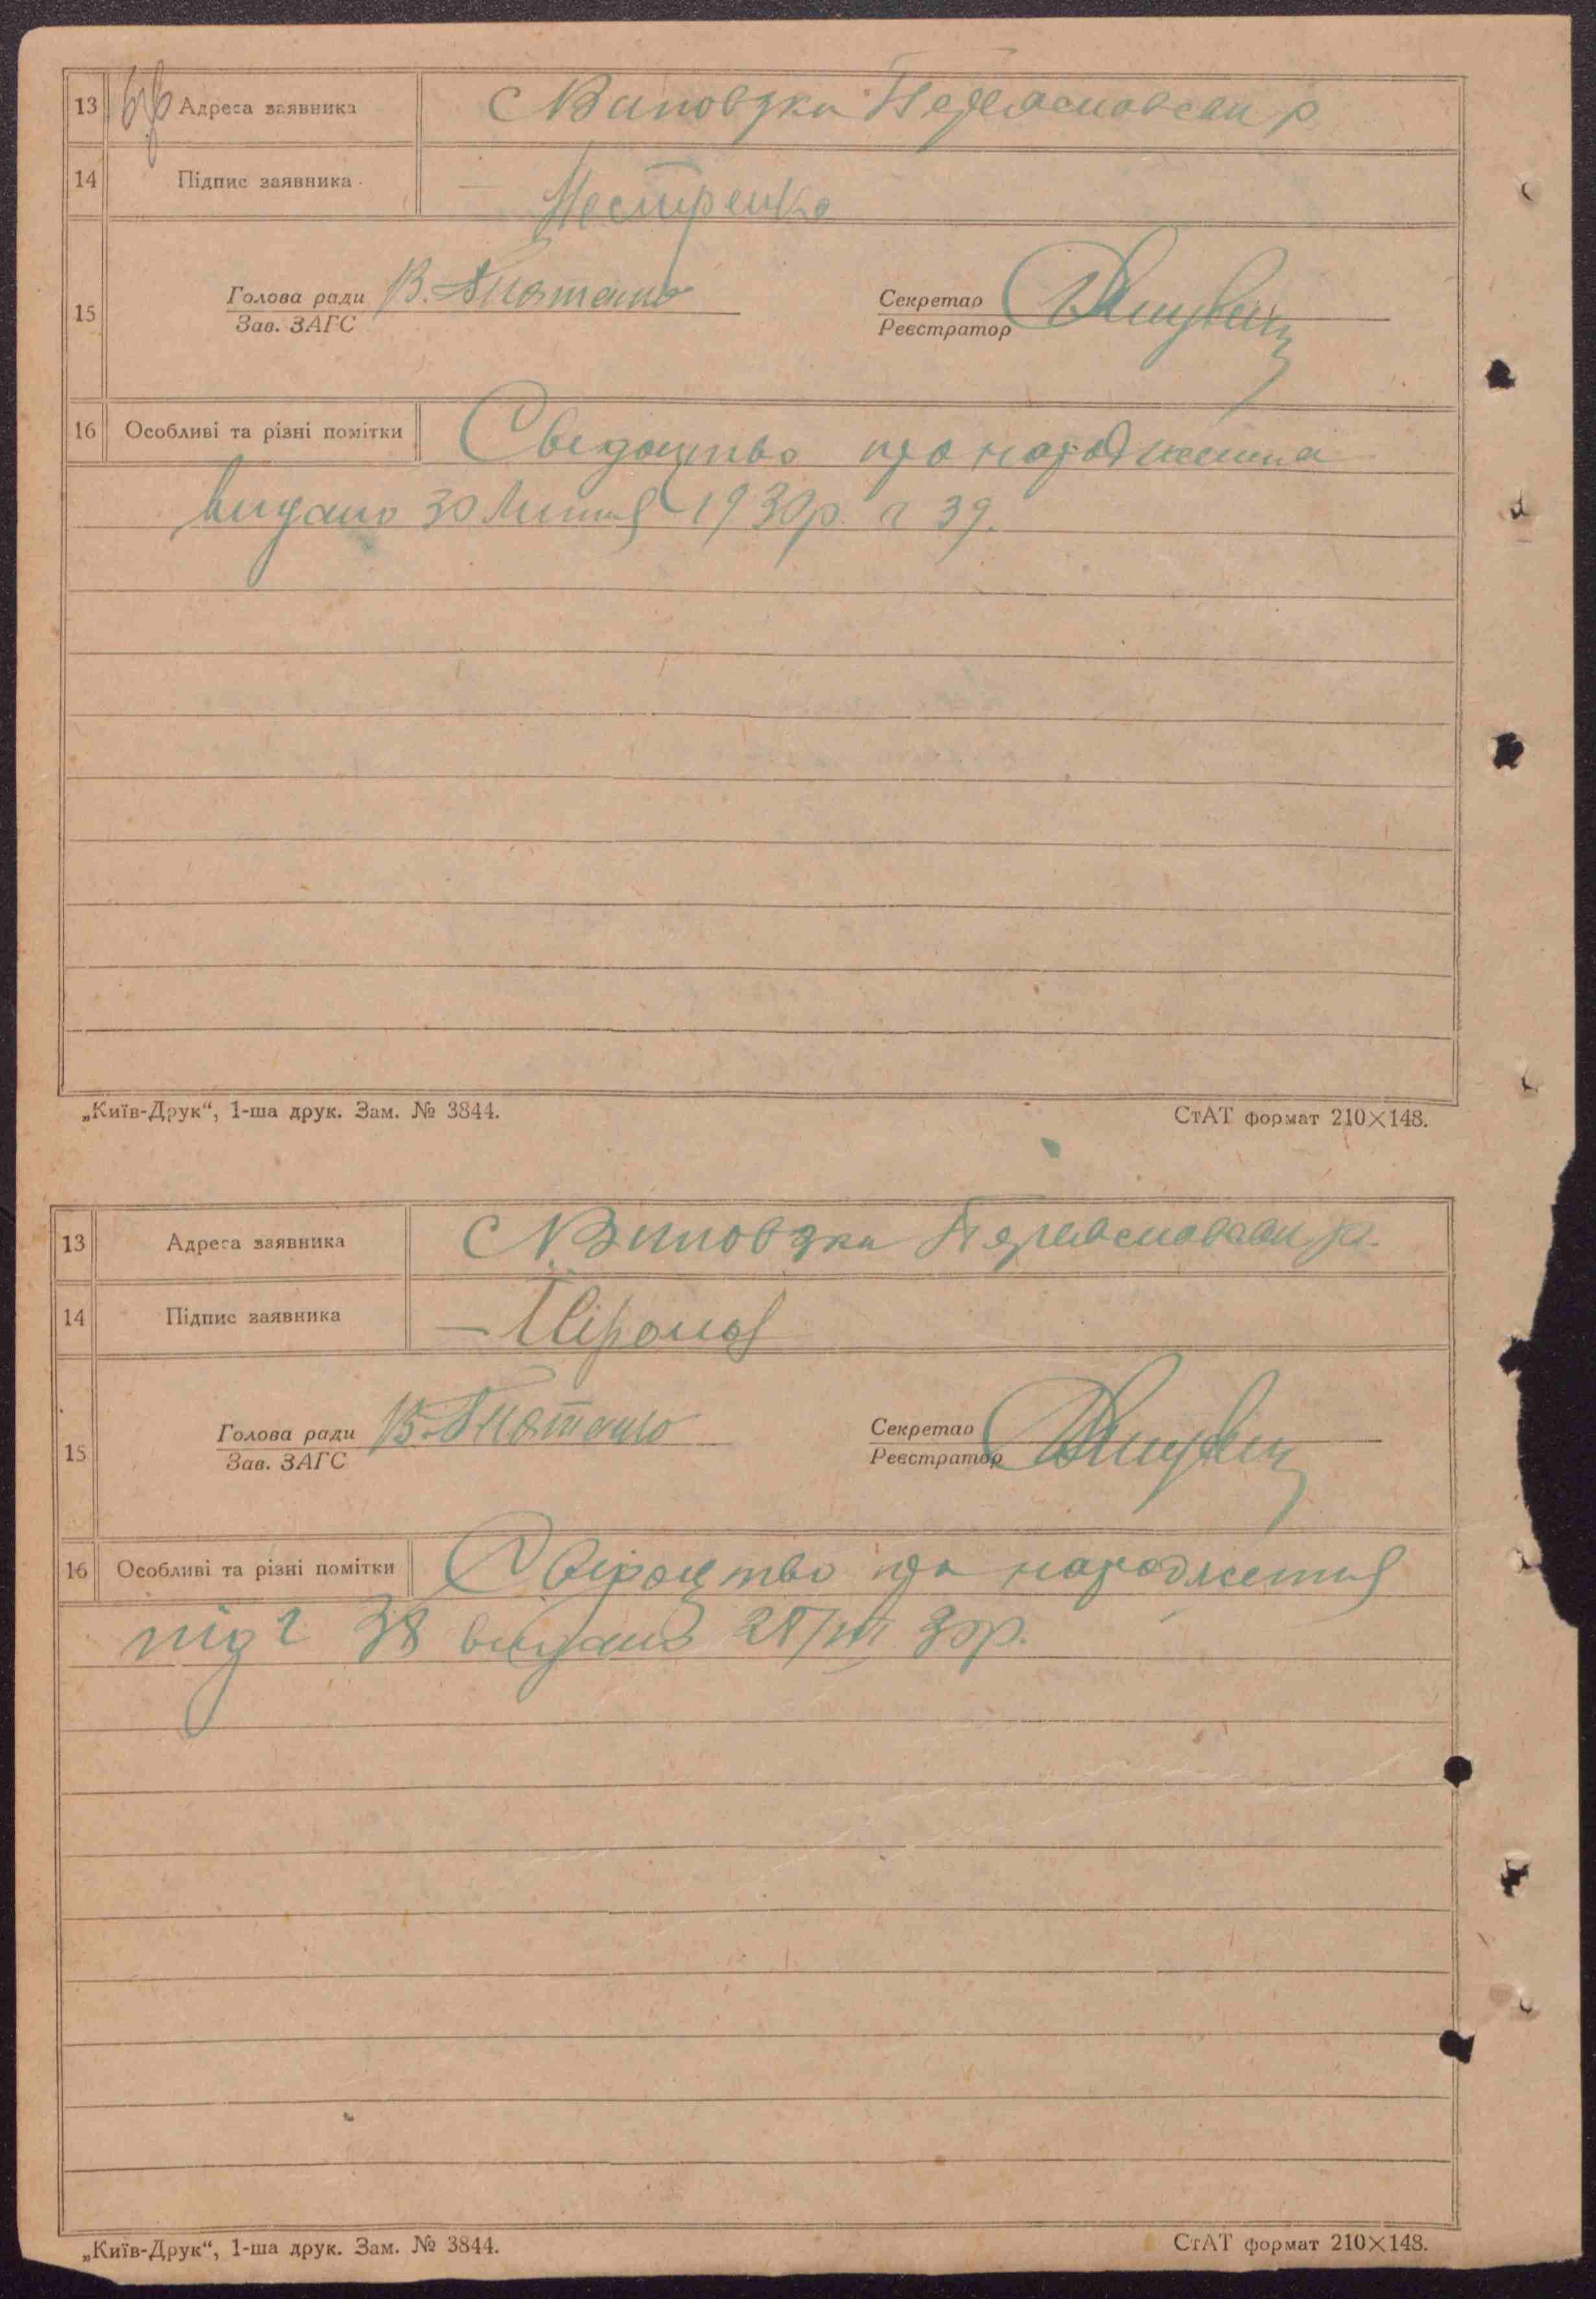 13 Адреса заявника С. Виповзки Переяславськ р
14 Підпис заявника — Нестеренко
Голова ради В. Гнатенко Секретар
15
Зав. ЗАГС Реєстратор
16 Особливі та різні помітки Сведоцтво про народження
видано 30 Липня 1930р. № 39.
„Київ-Друк“, 1-ша друк. Зам. № 3844. СтАТ формат 210×148.
13 Адреса заявника С. Виповзки Переяславськ р.
14 Підпис заявника —
Голова ради В. Гнатенко Секретар
15
Зав. ЗАГС Реєстратор
16 Особливі та різні помітки Свідоцтво про народження
під № 38 видано 30р.
„Київ-Друк“, 1-ша друк. Зам. № 3844. СтАТ формат 210×148.